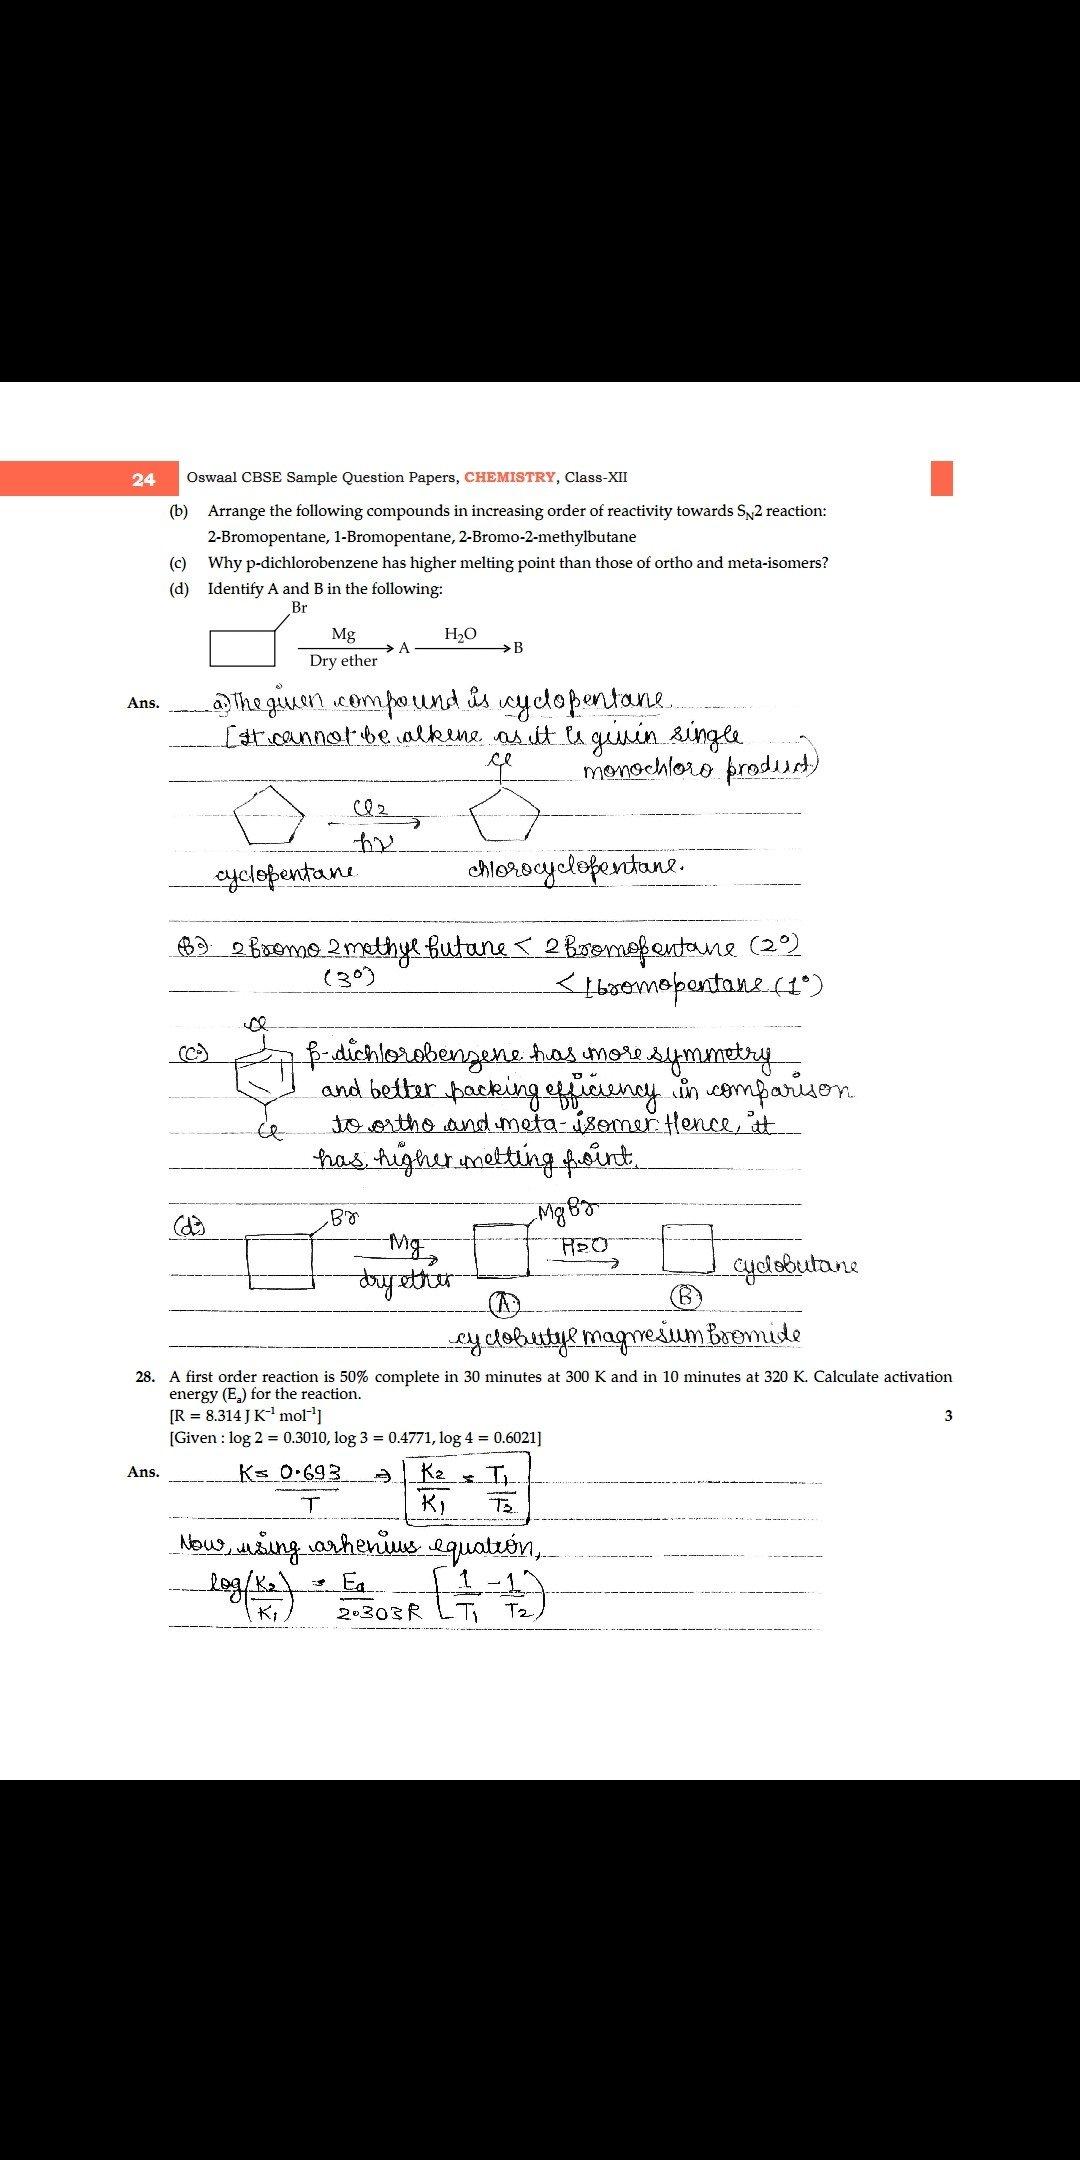 24 Oswaal CBSE Sample Question Papers, CHEMISTRY, Class-XII
(b) Arrange the following compounds in increasing order of reactivity towards SN2 reaction:
2-Bromopentane, 1-Bromopentane, 2-Bromo-2-methylbutane
(c) Why p-dichlorobenzene has higher melting point than those of ortho and meta-isomers?
(d) Identify A and B in the following:
Br
Mg H₂O
A B
Dry ether
Ans. a) The given compound is cyclopentane.
[It cannot be alkene as it is givin single
monochloro product)
Cl
Cl2
hν
cyclopentane chlorocyclopentane.
(b) 2 bromo 2 methyl butane < 2 bromopentane (2°)
(3°) < 1 bromopentane (1°)
Cl
(c) p-dichlorobenzene has more symmetry
and better packing efficiency in comparison
Cl to ortho and meta-isomer. Hence, it
has higher melting point.
(d) Br MgBr
Mg H2O
dry ether cyclobutane
(A) (B)
cyclobutyl magnesium bromide
28. A first order reaction is 50% complete in 30 minutes at 300 K and in 10 minutes at 320 K. Calculate activation
energy (Eₐ) for the reaction.
[R = 8.314 J K⁻¹ mol⁻¹] 3
[Given : log 2 = 0.3010, log 3 = 0.4771, log 4 = 0.6021]
Ans. K = 0.693 / T ⇒ K2 / K1 = T1 / T2
Now, using arhenius equation,
log(K2 / K1) = Ea / 2.303R [1 / T1 - 1 / T2)